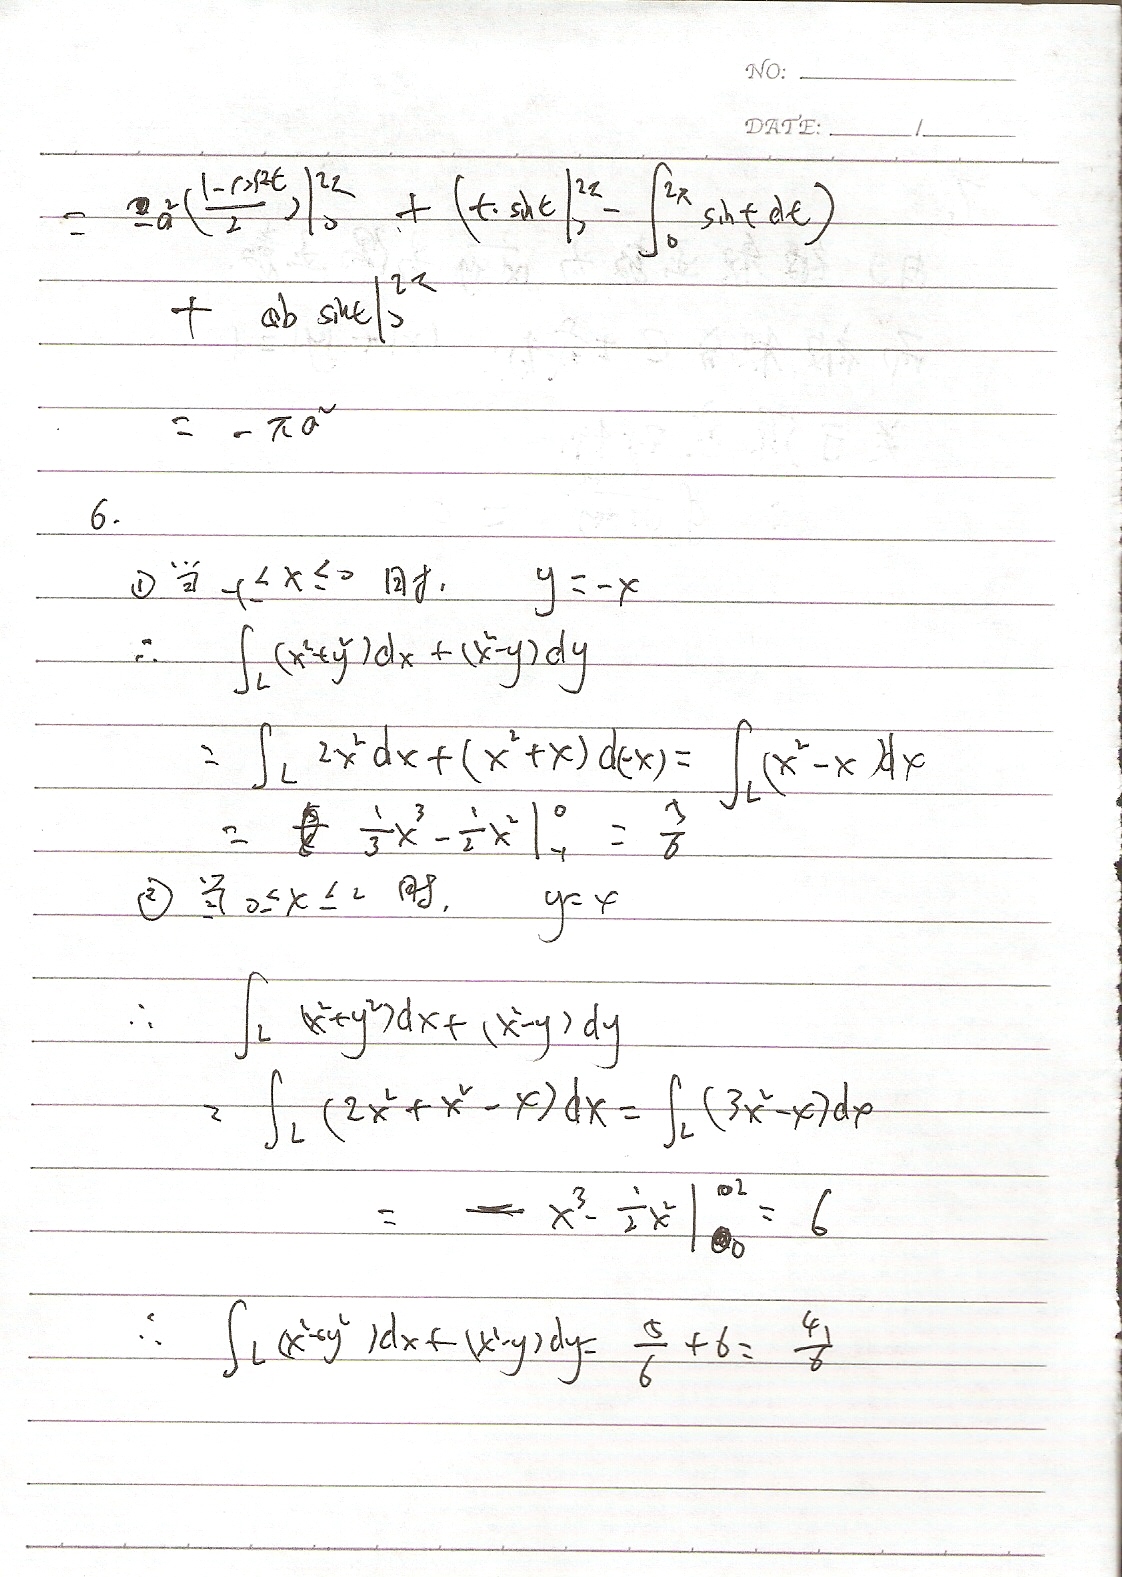 NO:
DATE: /
= -a²(\frac{1-cos2t}{2})|₀^{2π} + (t·sint|₀^{2π} - ∫₀^{2π} sint dt)
+ ab sint|₀^{2π}
= -πa²
6.
① 当 -1≤x≤0 时, y=-x
∴ ∫_L (x²+y²)dx+(x²-y)dy
= ∫_L 2x²dx+(x²+x)d(-x)= ∫_L(x²-x)dx
= \frac{1}{3}x³-\frac{1}{2}x²|_{-1}^{0} = \frac{5}{6}
② 当 0≤x≤2 时, y=x
∴ ∫_L (x²+y²)dx+(x²-y)dy
= ∫_L (2x²+x²-x)dx= ∫_L(3x²-x)dx
= x³-\frac{1}{2}x²|₀² = 6
∴ ∫_L (x²+y²)dx+(x²-y)dy= \frac{5}{6}+6= \frac{41}{6}